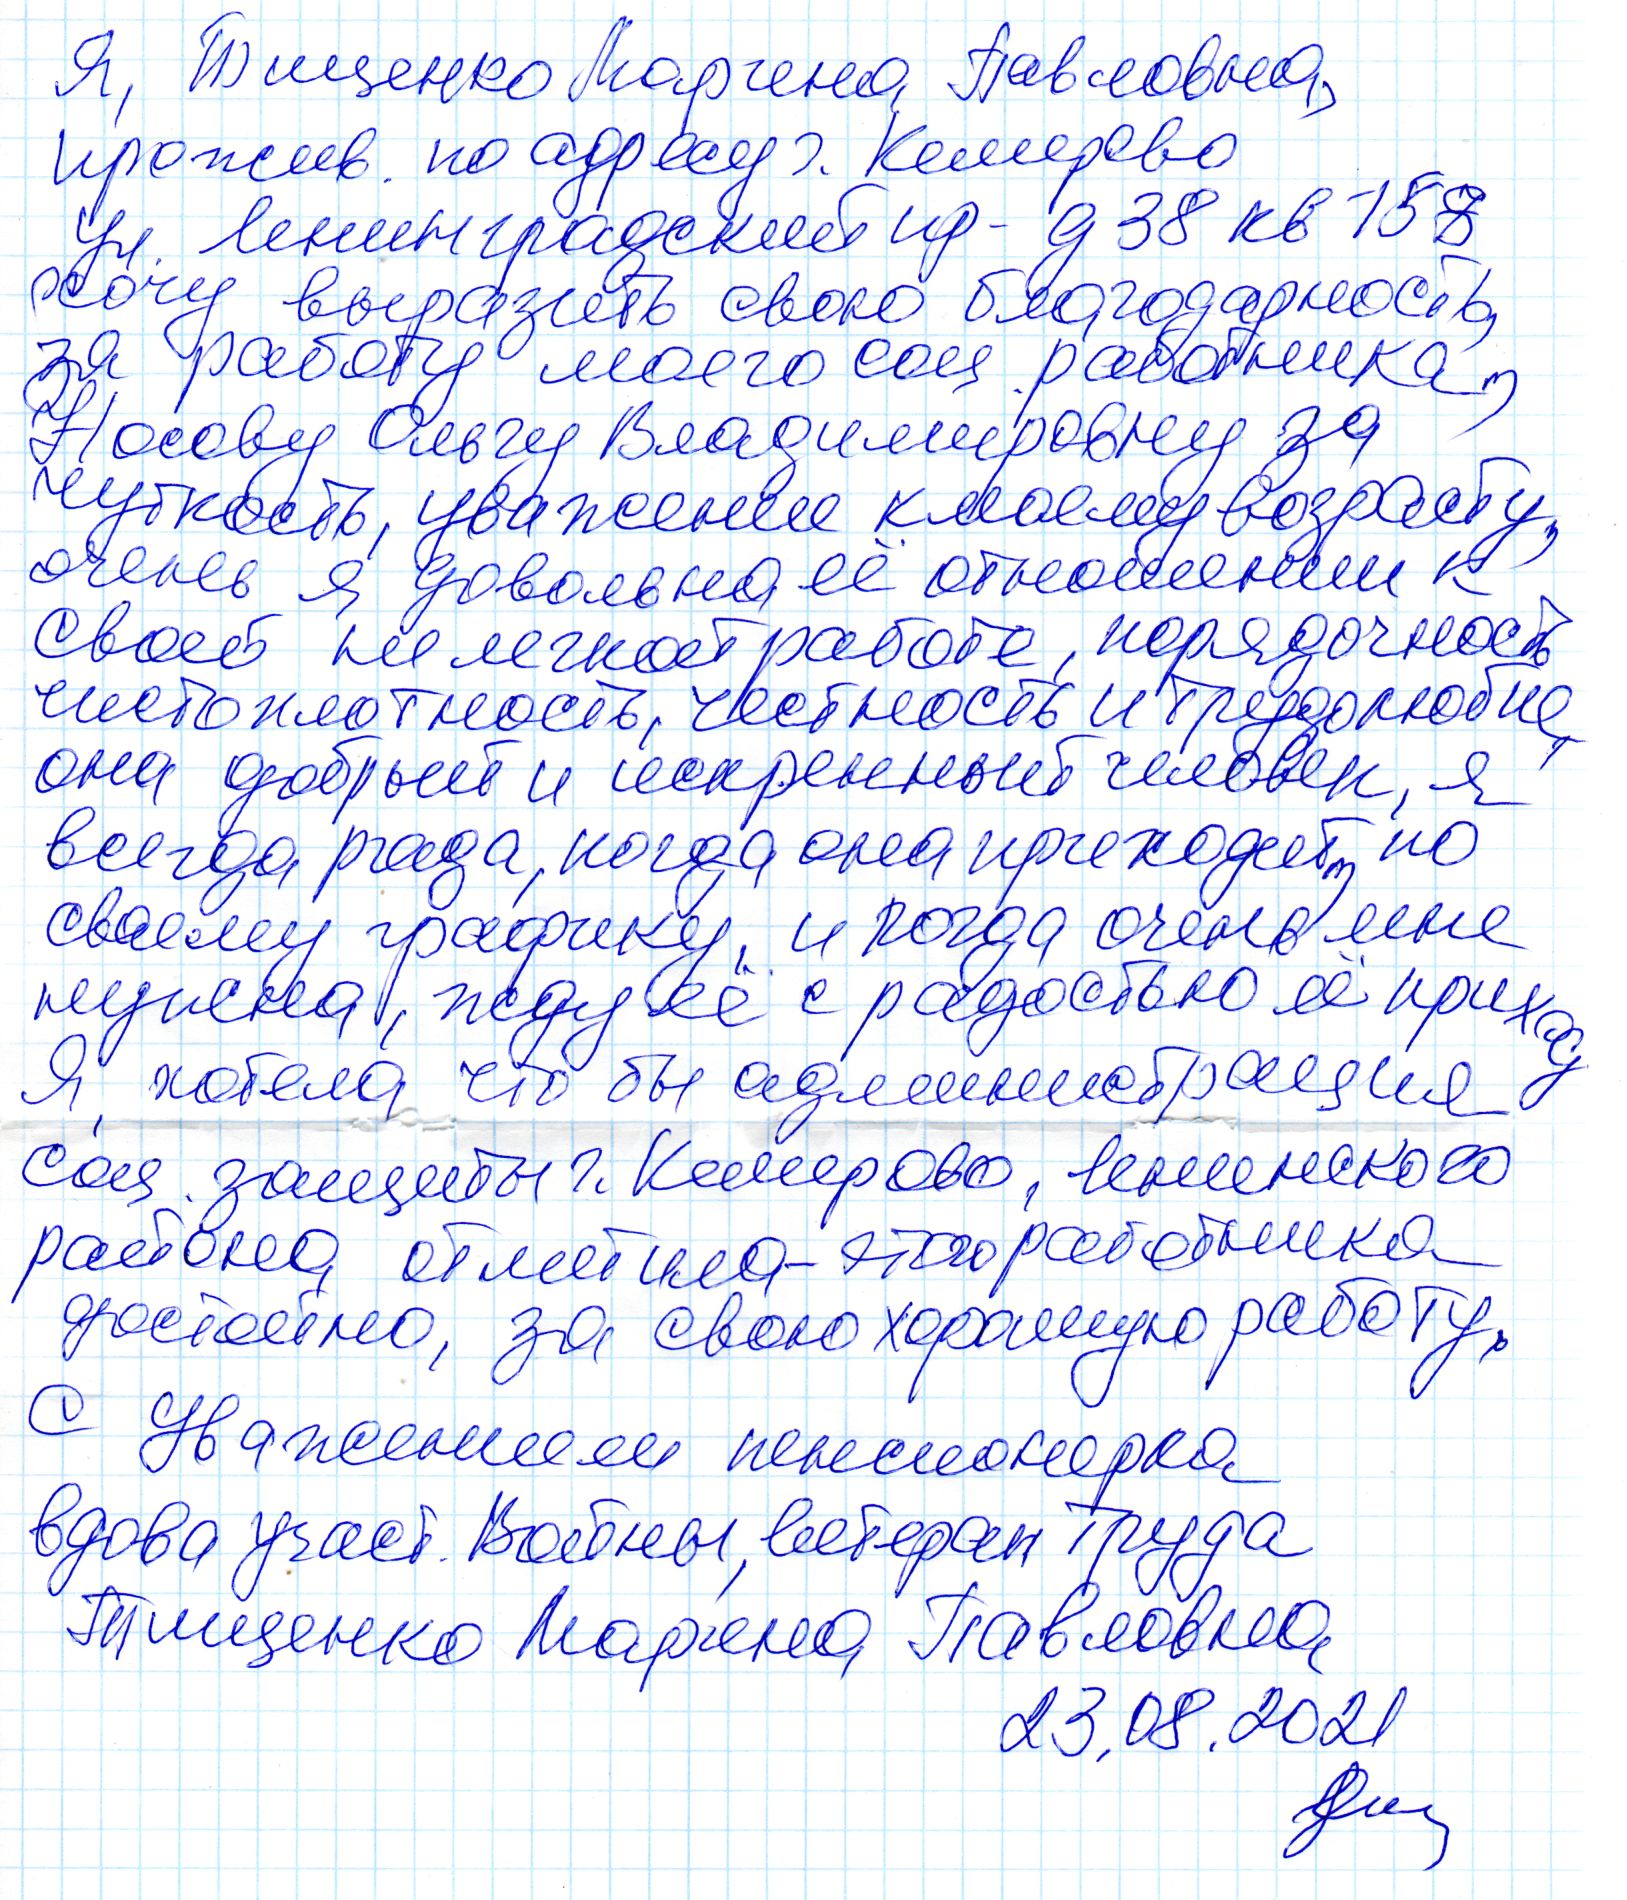 Я, Тищенко Марина Павловна,
прожив. по адресу г. Кемерово
ул. Ленинградский пр- д 38 кв 158
хочу выразить свою благодарность,
за работу моего соц. работника,
Носову Ольгу Владимировну за
чуткость, уважение к моему возрасту,
очень я довольна её отношении к
своей не легкой работе, порядочность
чистоплотность, честность и трудолюбие,
она добрый и искренный человек, я
всегда рада, когда она приходит, по
своему графику, и когда очень мне
нужена, жду её с радостью её приход
Я хотела что бы администрация
соц. защиты г. Кемерово, Ленинского
района отметила- этого работника
достойно, за свою хорошую работу.
С Уважением пенсионерка
вдова участ. Войны, ветеран Труда
Тищенко Марина Павловна
23.08.2021